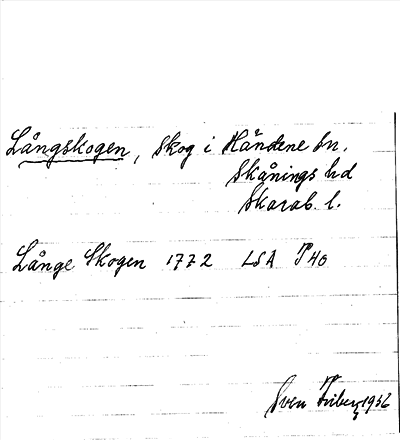 Långskogen, skog i Händene sn.
Skånings hd
Skarab. l.
Långe Skogen 1772 LSA P40
Sven Friberg 1936